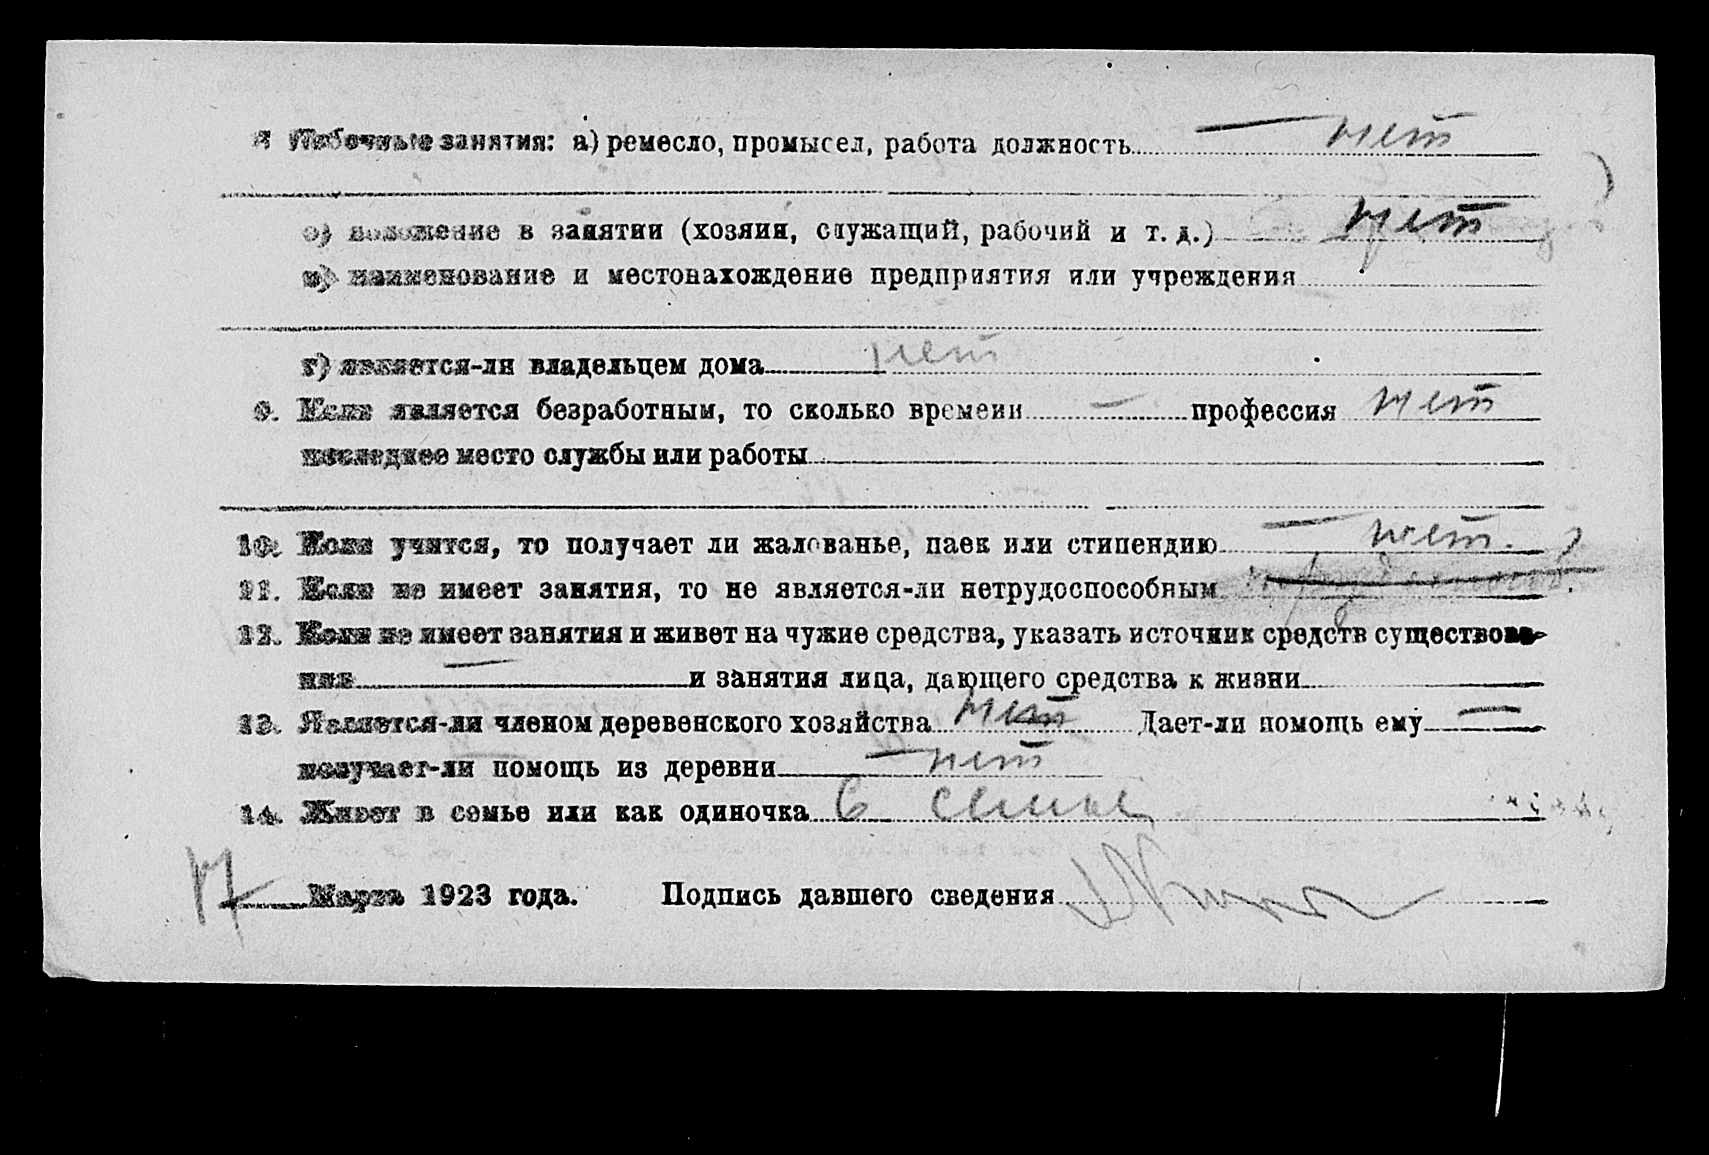 Побочные занятия: а) ремесло, промысел, работа должность — нет
б) положение в занятии (хозяин, служащий, рабочий и т. д.) нет
в) наименование и местонахождение предприятия или учреждения
г) является-ли владельцем дома нет
9. Если является безработным, то сколько времени — профессия нет
последнее место службы или работы
10. Если учится, то получает ли жалованье, паек или стипендию — нет.
11. Если не имеет занятия, то не является-ли нетрудоспособным
12. Если не имеет занятия и живет на чужие средства, указать источник средств существова-
ния — и занятия лица, дающего средства к жизни
13. Является-ли членом деревенского хозяйства нет Дает-ли помощь ему —
получает-ли помощь из деревни — нет
14. Живет в семье или как одиночка В семье
17 Марта 1923 года. Подпись давшего сведения